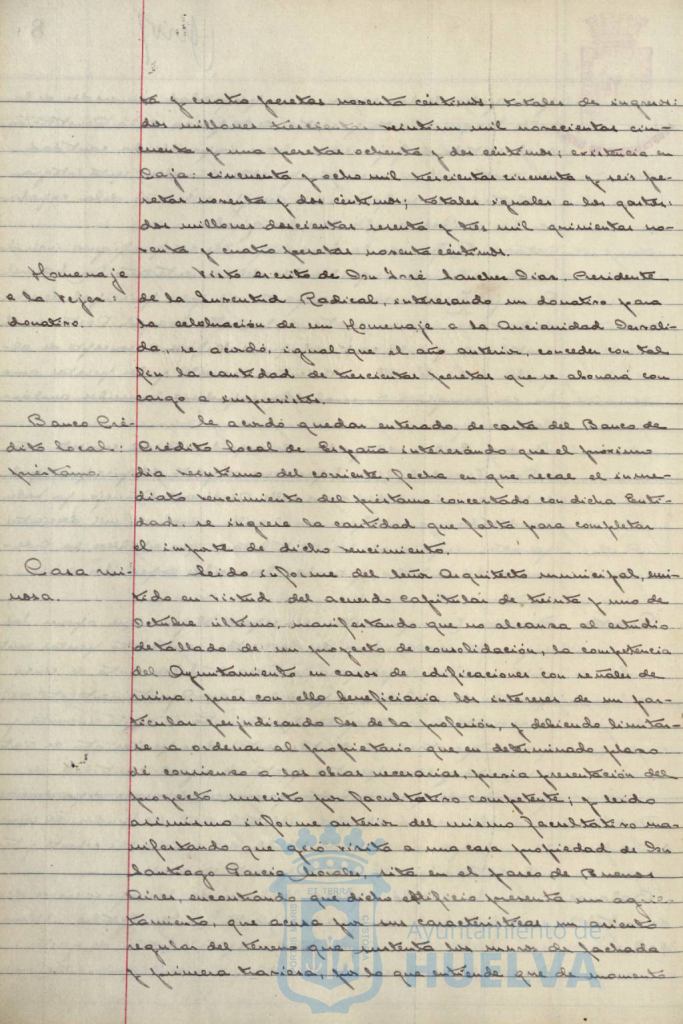 ta y cuatro pesetas noventa céntimos; totales de ingresos:
dos millones trescientas veintiun mil novecientas cin-
cuenta y una pesetas ochenta y dos céntimos; existencia en
Caja: cincuenta y ocho mil trescientas cincuenta y seis pe-
setas noventa y dos céntimos; totales iguales a los gastos:
dos millones doscientas sesenta y tres mil quinientas no-
venta y cuatro pesetas noventa céntimos.
Homenaje
a la Vejez:
donativo.
Visto escrito de Don José Sanchez Diaz, Presidente
de la Juventud Radical, interesando un donativo para
la celebración de un Homenaje a la Ancianidad Desvali-
da, se acordó, igual que el año anterior, conceder con tal
fin la cantidad de trescientas pesetas que se abonará con
cargo a imprevistos.
Banco Cré-
dito local:
préstamo.
Se acordó quedar enterado de carta del Banco de
Crédito local de España interesando que el próximo
dia veintiuno del corriente, fecha en que recae el inme-
diato vencimiento del préstamo concertado con dicha Enti-
dad, se ingrese la cantidad que falta para completar
el importe de dicho vencimiento.
Casa rui-
nosa.
Leido informe del Señor Arquitecto municipal, emi-
tido en virtud del acuerdo Capitular de treinta y uno de
Octubre último, manifestando que no alcanza al estudio
detallado de un proyecto de consolidación, la competencia
del Ayuntamiento en casos de edificaciones con señales de
ruina, pues con ello beneficiaria los intereses de un par-
ticular perjudicando los de la profesión, y debiendo limitar-
se a ordenar al propietario que en determinado plazo
dé comienzo a las obras necesarias, previa presentación del
proyecto suscrito por facultativo competente; y leido
asimismo informe anterior del mismo facultativo ma-
nifestando que giró visita a una casa propiedad de Don
Santiago Garcia Morales, sita en el paseo de Buenos
Aires, encontrando que dicho edificio presenta un agrie-
tamiento, que acusa por sus caracteristicas un asiento
regular del terreno que sustenta los muros de fachada
y primera traviesa, por lo que entiende que de momento
Ayuntamiento de
HUELVA